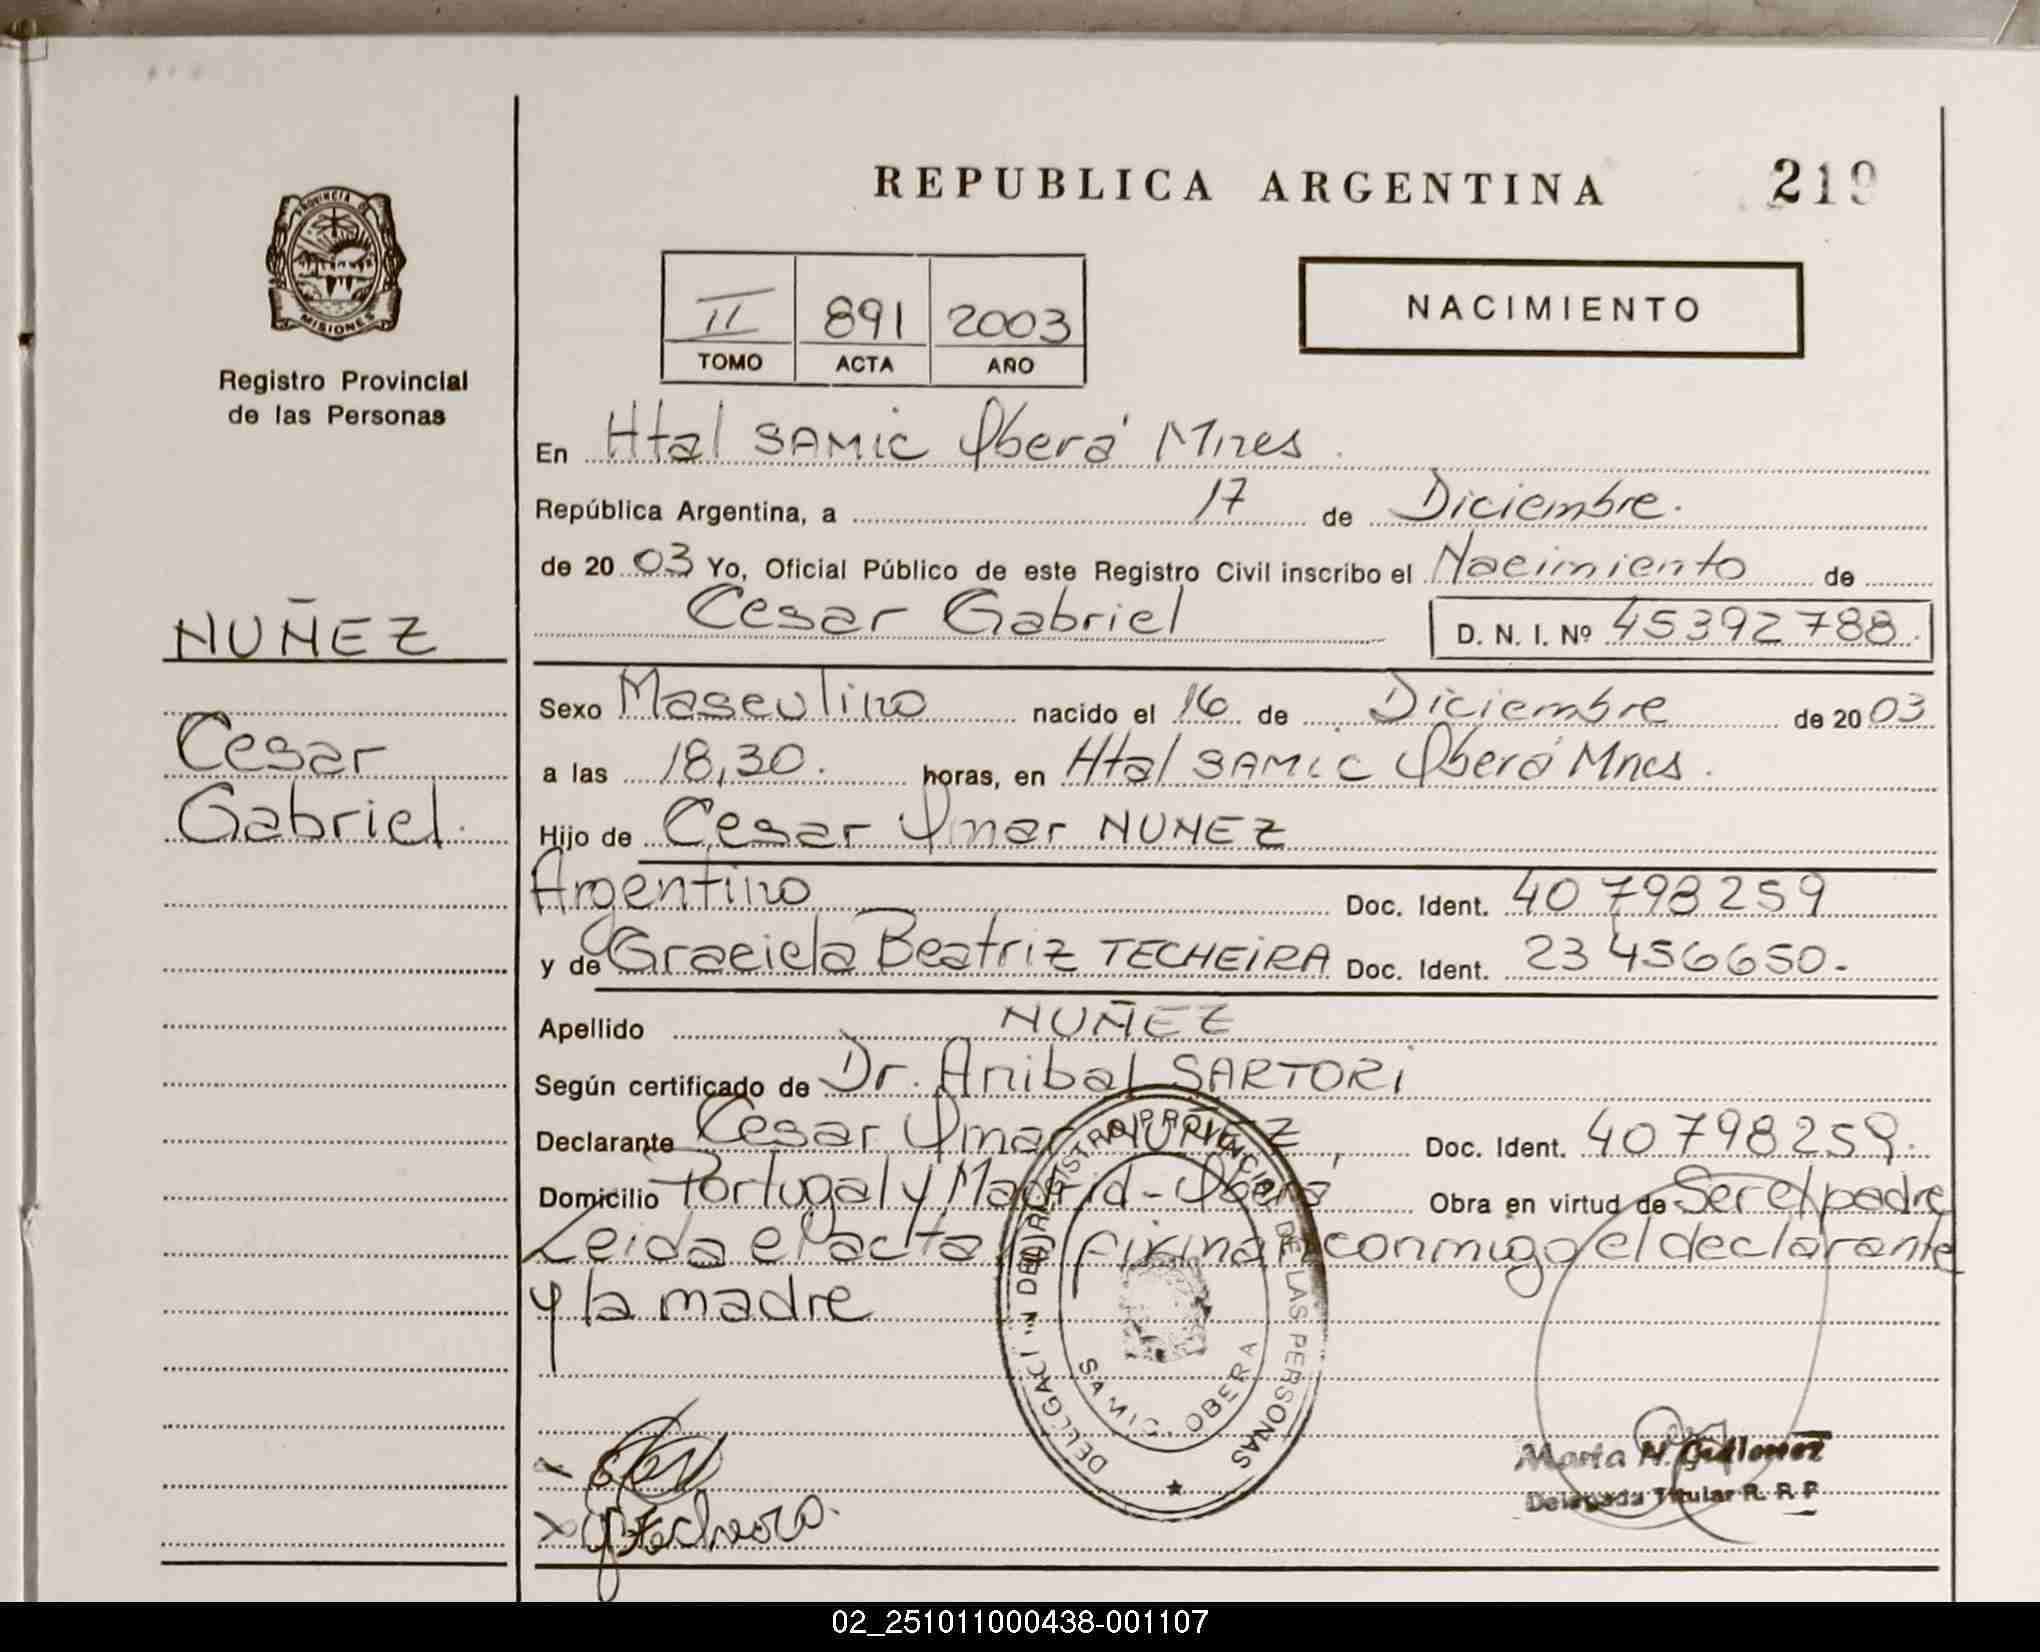 REPUBLICA ARGENTINA 219
PROVINCIA DE MISIONES
Registro Provincial
de las Personas
NACIMIENTO
II 891 2003
TOMO ACTA AÑO
En Htal SAMIC Oberá Mnes
República Argentina, a 17 de Diciembre.
de 2003 Yo, Oficial Público de este Registro Civil inscribo el Nacimiento de
Cesar Gabriel D. N. I. Nº 45392788.
NUÑEZ
Cesar
Gabriel.
Sexo Masculino nacido el 16 de Diciembre de 2003
a las 18,30. horas, en Htal SAMIC Oberá Mnes.
Hijo de Cesar Omar NUNEZ
Argentino Doc. Ident. 40 798 259
y de Graciela Beatriz TECHEIRA Doc. Ident. 23 456650.
Apellido NUÑEZ
Según certificado de Dr. Anibal SARTORI
Declarante Cesar Omar NUÑEZ, Doc. Ident. 40798259.
Domicilio Portugal y Madrid - Oberá Obra en virtud de Ser el padre
Leida el acta la firman conmigo el declarante
y la madre
REGISTRO PROVINCIAL DE LAS PERSONAS
SAMIC. OBERA
Techeira.
Delegada Titular R. R. P.
02_251011000438-001107